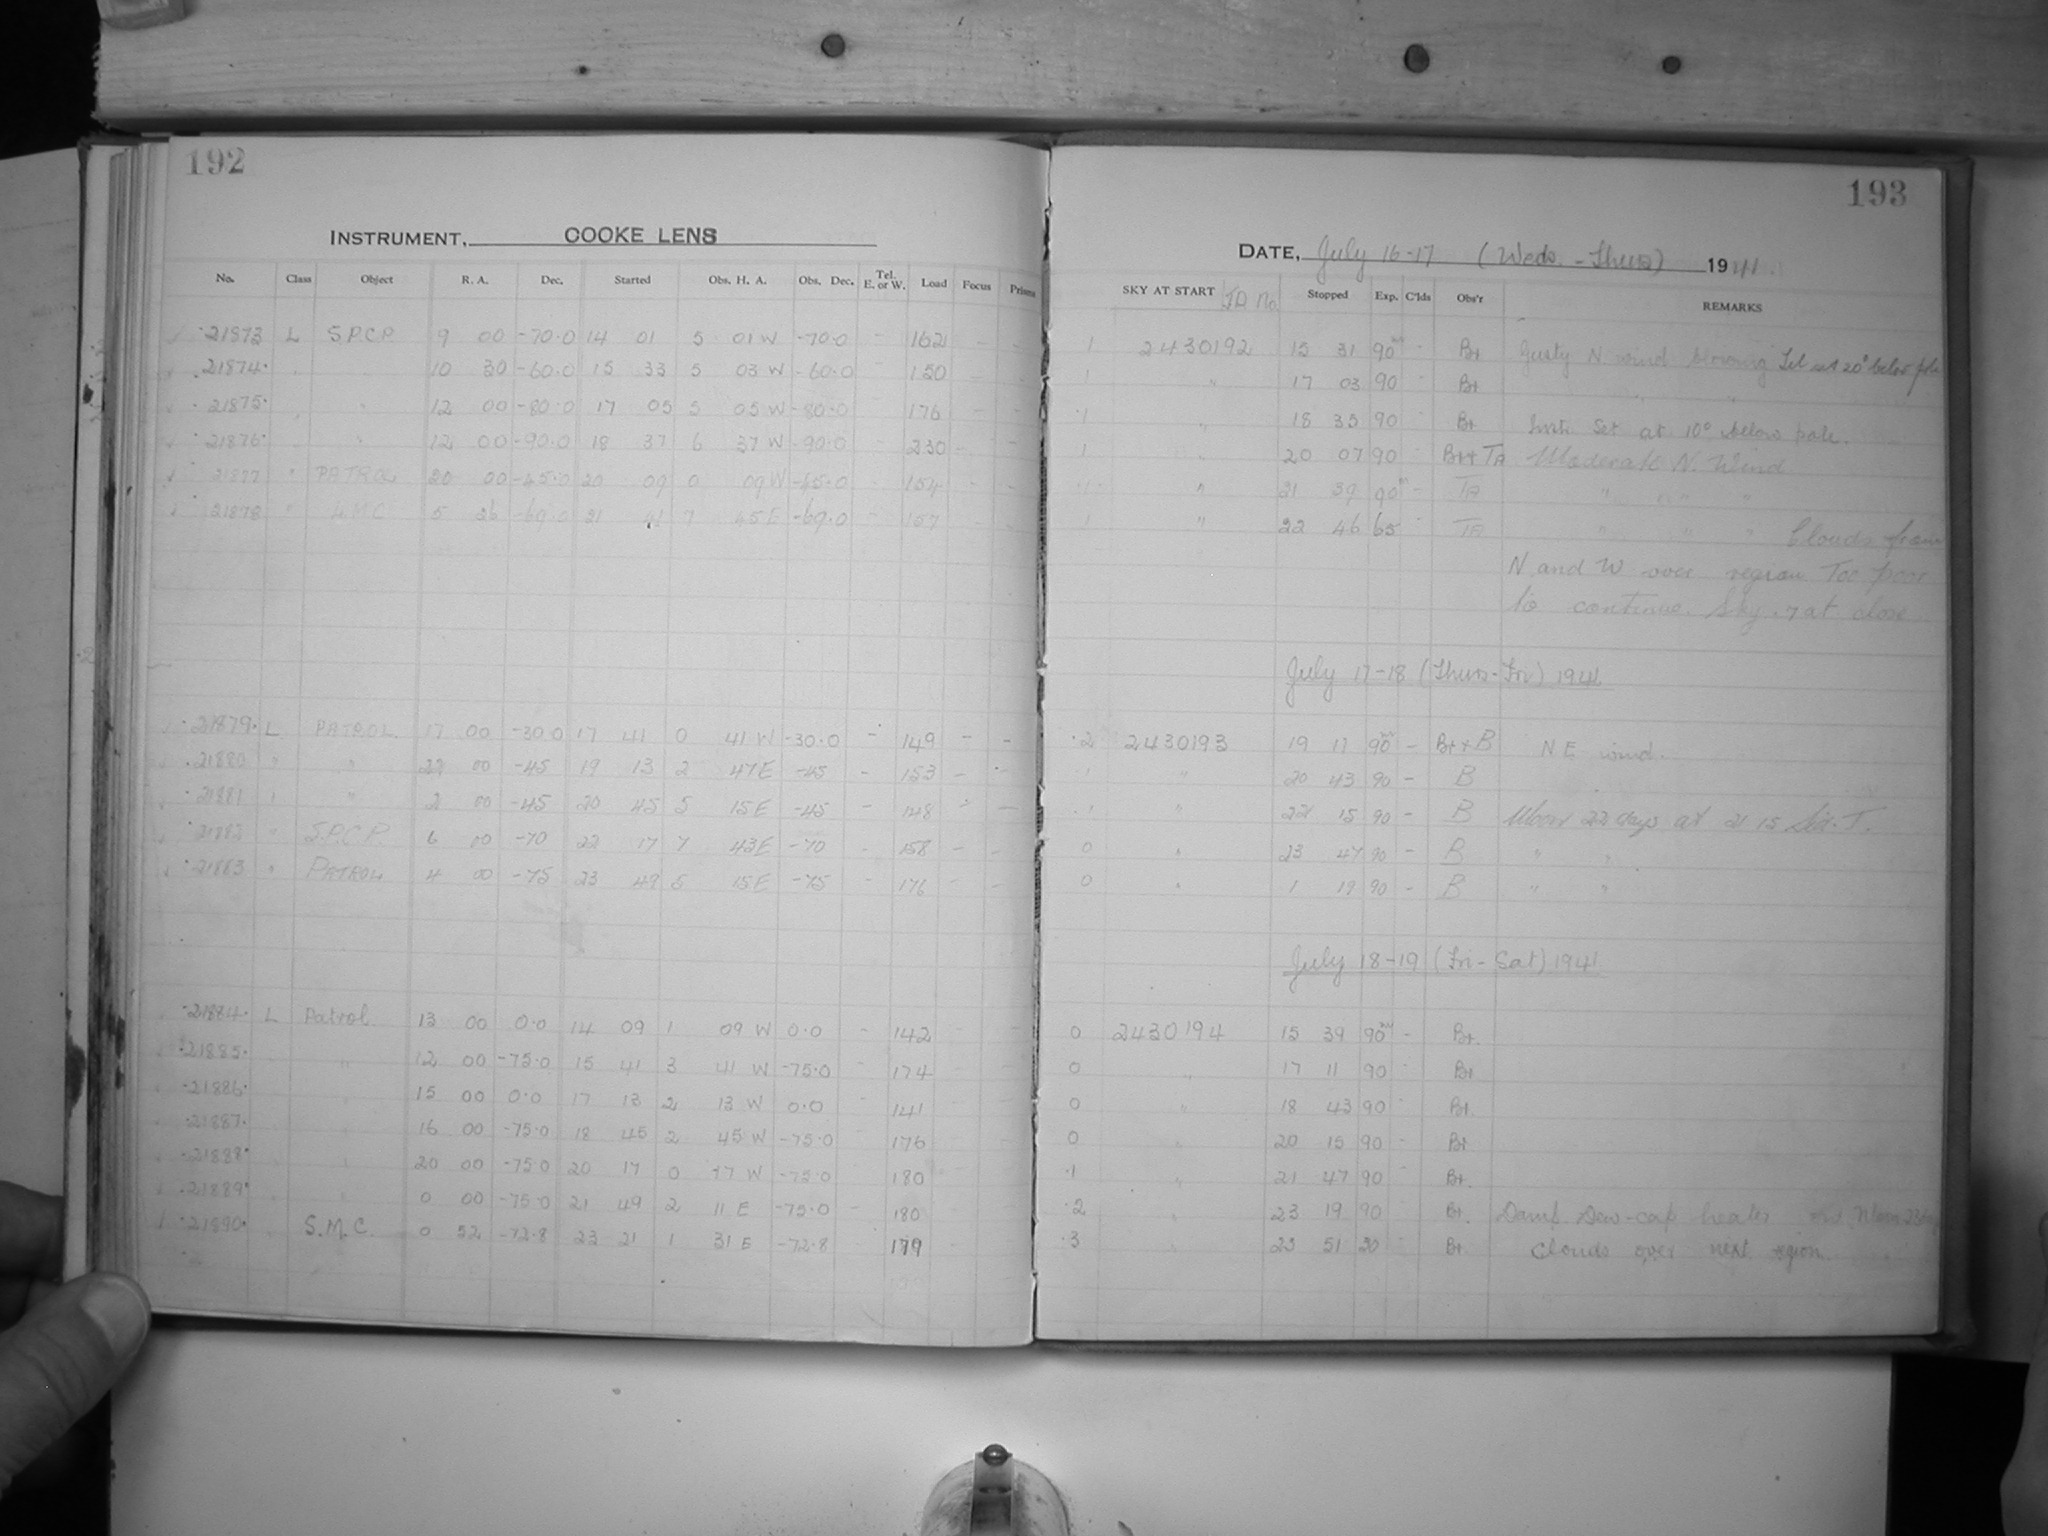 192
INSTRUMENT, COOKE LENS
No. Class Object R. A. Dec. Started Obs. H. A. Obs. Dec. Tel. E. or W. Load Focus Prisms
21873 L S.P.C.P. 9 00 -70.0 14 01 5 01 W -70.0 - 162 - -
21874 10 30 -60.0 15 33 5 03 W -60.0 - 150 - -
21875 " 12 00 -80.0 17 05 5 05 W -80.0 - 176 - -
21876 " 12 00 -90.0 18 37 6 37 W -90.0 - 230 - -
21877 " PATROL 20 00 -45.0 20 09 0 09 W -45.0 - 154 - -
21878 " 5 26 -69.0 21 41 7 45 E -69.0 - 157 - -
21879 L PATROL 17 00 -30.0 17 41 0 41 W -30.0 - 149 - -
21880 " " 22 00 -45 19 13 2 47 E -45 - 153 - -
21881 " " 2 00 -45 20 45 5 15 E -45 - 148 - -
21882 " S.P.C.P. 6 00 -70 22 17 7 43 E -70 - 158 - -
21883 " PATROL 4 00 -75 23 49 5 15 E -75 - 176 - -
21884 L Patrol 13 00 0.0 14 09 1 09 W 0.0 - 142
21885 " 12 00 -75.0 15 41 3 41 W -75.0 174
21886 " 15 00 0.0 17 13 2 13 W 0.0 141
21887 " 16 00 -75.0 18 45 2 45 W -75.0 176
21888 " 20 00 -75.0 20 17 0 17 W -75.0 180
21889 " 0 00 -75.0 21 49 2 11 E -75.0 - 180
21890 S.M.C. 0 52 -72.8 23 21 1 31 E -72.8 179
193
DATE, July 16-17 (Weds. - Thurs) 1941.
SKY AT START JD No. Stopped Exp. C'lds Obs'r REMARKS
1 2430192 15 31 90m - Bt Gusty N wind blowing Tel set 20° below pole
1 " 17 03 90 Bt " "
.1 " 18 35 90 - Bt Instr. Set at 10° below pole.
1 20 07 90 - Bt+TA Moderate N. Wind
" 21 39 90m - TA " " " "
1 " 22 46 65 - TA " " " Clouds from
N. and W over region Too poor
to continue. Sky .7 at close.
July 17-18 (Thurs-Fri) 1941
.2 2430193 19 11 90m - Bt+B NE wind.
.1 " 20 43 90 - B
.1 " 22 15 90 - B Moon 23 days at 21 15 Sid. T.
0 " 23 47 90 - B " "
0 " 1 19 90 - B " "
July 18-19 (Fri - Sat) 1941
0 2430194 15 39 90m - Bt.
0 " 17 11 90 - Bt
0 " 18 43 90 - Bt.
0 " 20 15 90 - Bt
.1 " 21 47 90 - Bt.
.2 " 23 19 90 Bt. Damp Dew-cap heater on. Moon
.3 " 23 51 30 Bt. Clouds over next region.